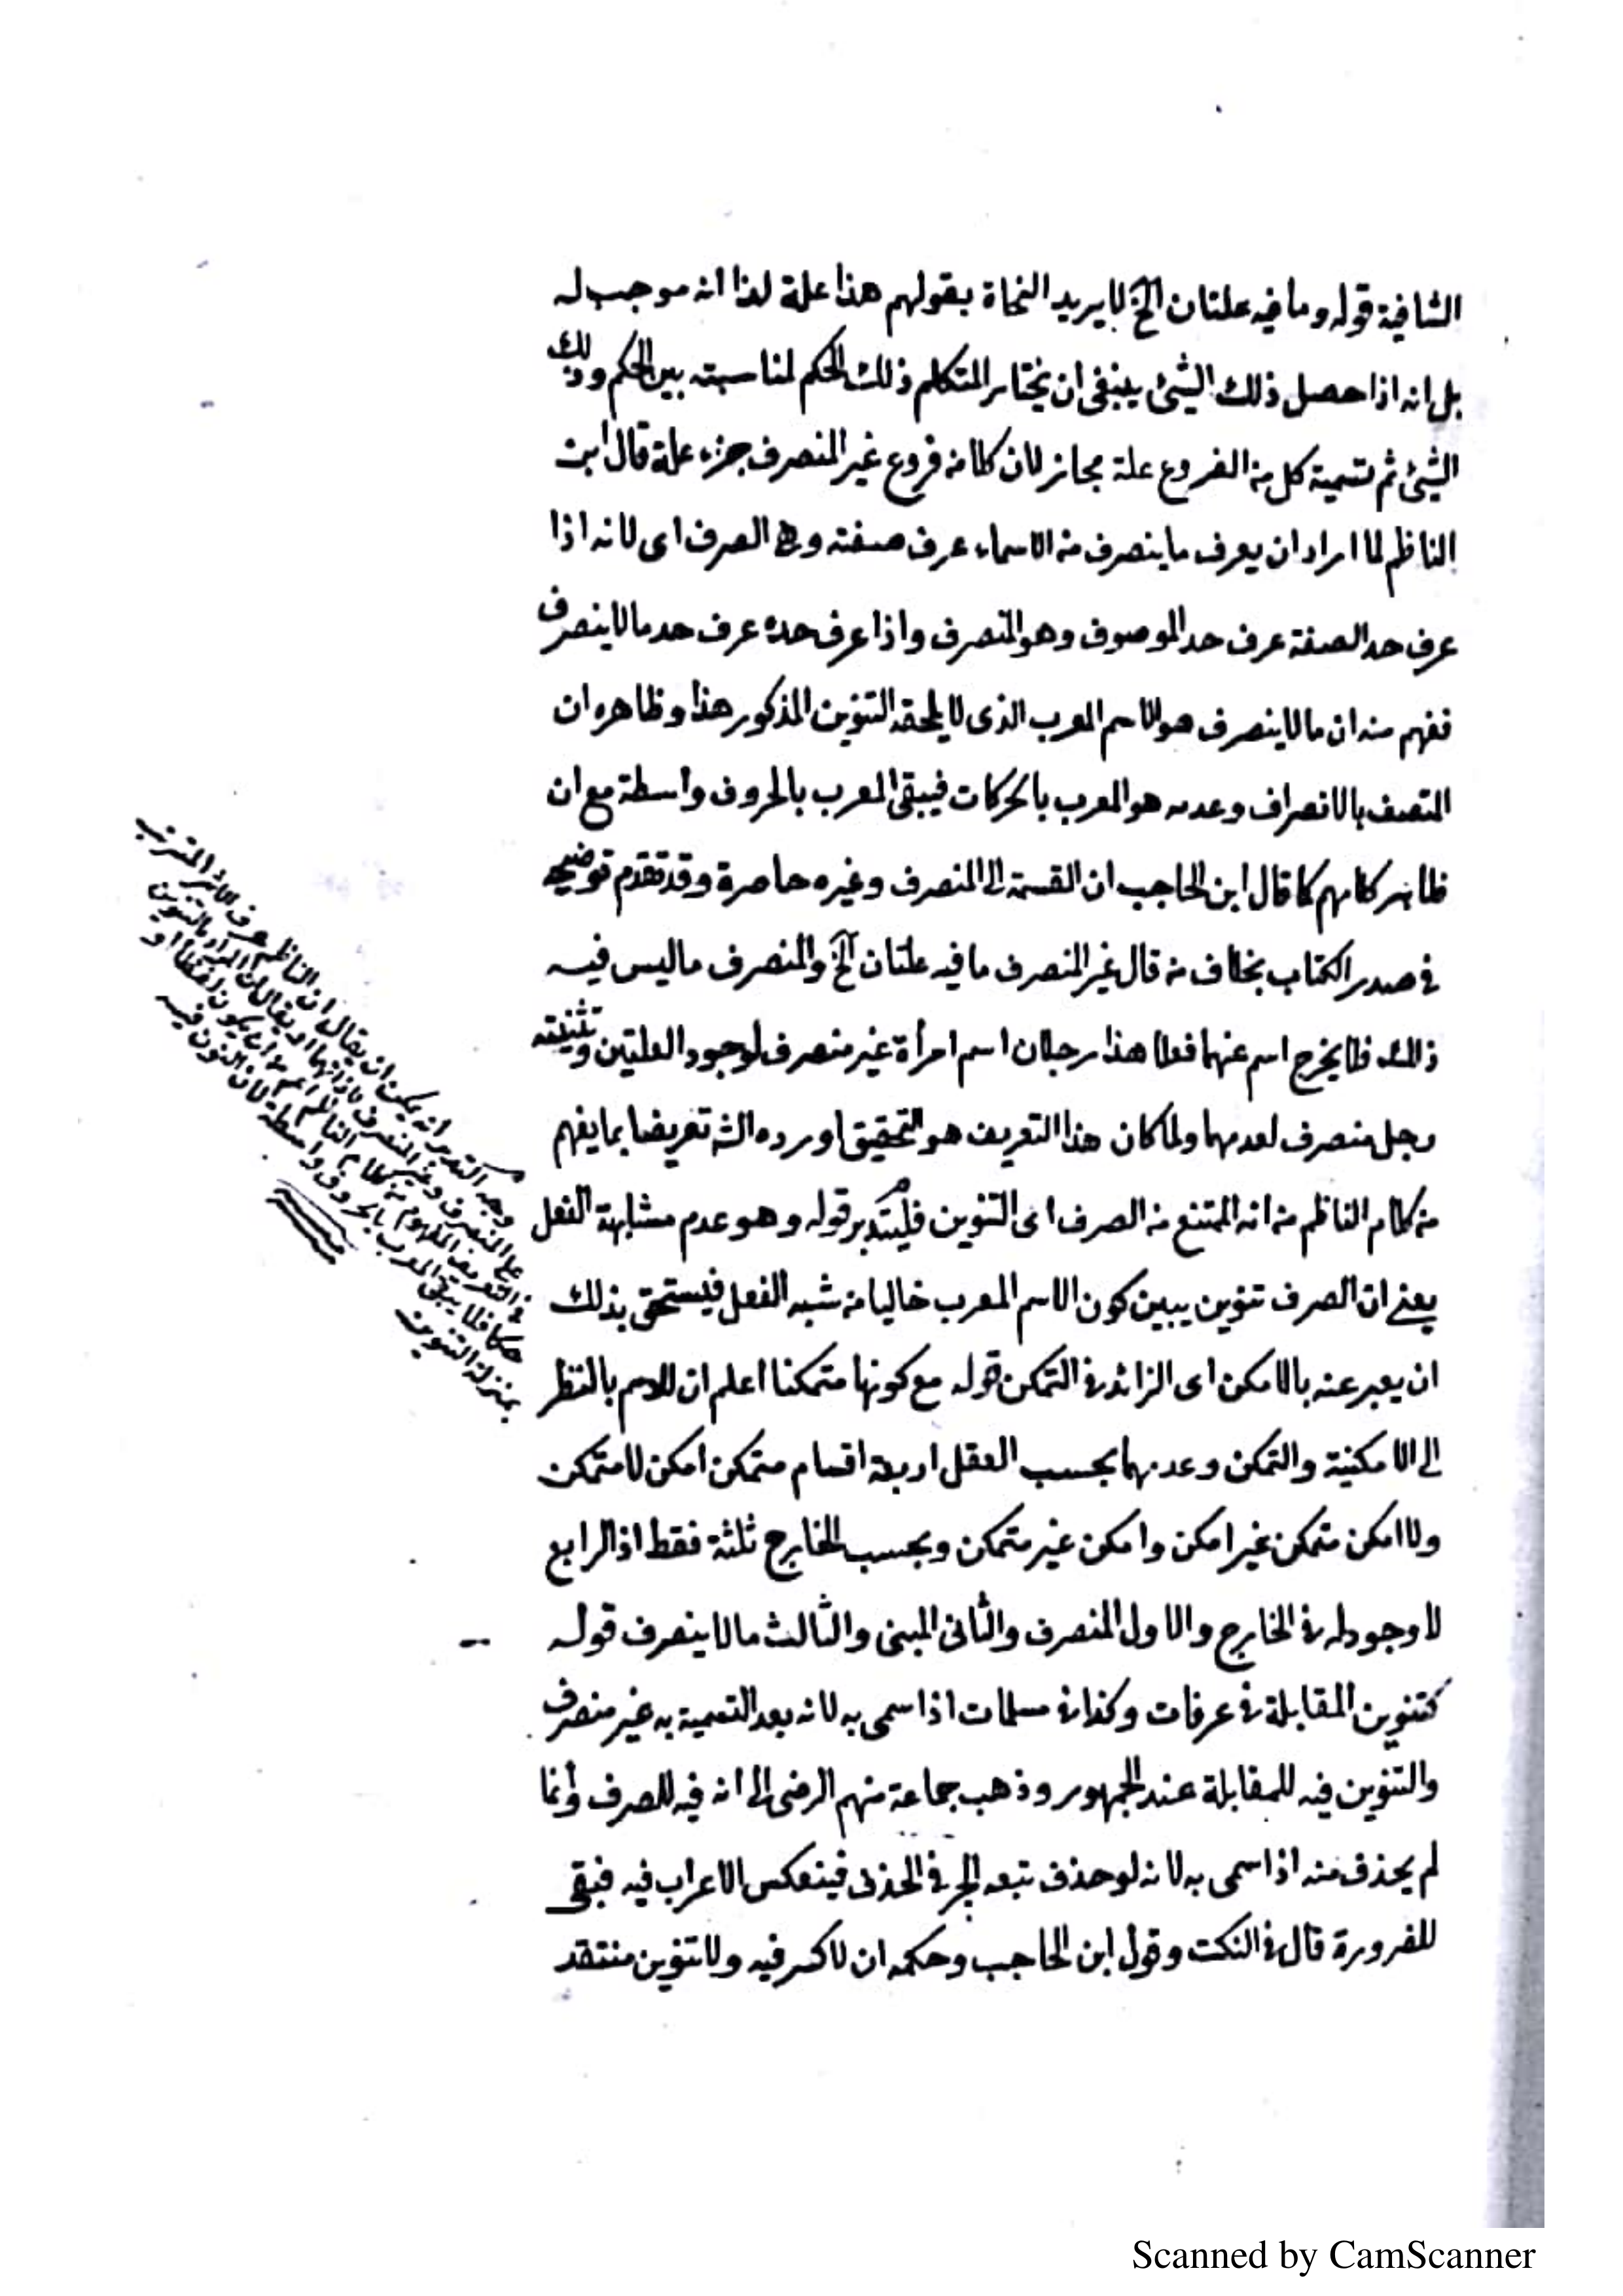 الشافية قوله وما فيه علتان الخ لا يريد النحاة بقولهم هذا علة لهذا انه موجب له
بل انه اذا حصل ذلك الشيئ ينبغى ان يختار المتكلم ذلك الحكم لمناسبته بين الحكم وذلك
الشيئ ثم تسمية كل من الفروع علة مجاز لان كلا من فروع غير المنصرف جزء علة قال ابن
الناظم لما اراد ان يعرف ما ينصرف من الاسماء عرف صفته وهى الصرف اى لانه اذا
عرف حد الصفة عرف حد الموصوف وهو المنصرف واذا عرف حده عرف حد ما لا ينصرف
ففهم منه ان ما لا ينصرف هو الاسم المعرب الذى لا يلحقه التنوين المذكور هذا وظاهره ان
المتصف بالانصراف وعدمه هو المعرب بالحركات فيبقى المعرب بالحروف واسطة مع ان
ظاهر كلامهم كما قال ابن الحاجب ان القسمة الى المنصرف وغيره حاصرة وقد تقدم توضيحه
فى صدر الكتاب بخلاف من قال غير المنصرف ما فيه علتان الخ والمنصرف ما ليس فيه
ذلك فلا يخرج اسم عنهما فعلا هذا رجلان اسم امرأة غير منصرف لوجود العلتين وتثنيته
رجل منصرف لعدمهما ولما كان هذا التعريف هو التحقيق اورده الشه تعريضا بما يفهم
من كلام الناظم من انه الممتنع من الصرف اى التنوين فليتدبر قوله وهو عدم مشابهة الفعل
يعنى ان الصرف تنوين يبين كون الاسم المعرب خاليا من شبه الفعل فيستحق بذلك
ان يعبر عنه بالامكن اى الزائد فى التمكن قوله مع كونها متمكنا اعلم ان للاسم بالنظر
الى الامكنية والتمكن وعدمهما بحسب العقل اربعة اقسام متمكن امكن لا متمكن
ولا امكن متمكن غير امكن وامكن غير متمكن وبحسب الخارج ثلثة فقط اذ الرابع
لا وجود له فى الخارج والاول المنصرف والثانى المبنى والثالث ما لا ينصرف قوله
كتنوين المقابلة فى عرفات وكذا فى مسلمات اذا سمى به لانه بعد التسمية به غير منصرف
والتنوين فيه للمقابلة عند الجمهور وذهب جماعة منهم الرضى الى انه فيه للصرف وانما
لم يحذف منه اذا سمى به لانه لو حذف تبعه الجر فى الحذف فينعكس الاعراب فيه فبقى
للضرورة قال فى النكت وقول ابن الحاجب وحكمه ان لا كسر فيه ولا تنوين منتقد
وجه التدبر انه يمكن ان يقال ان الناظم عرف الاثر المترتب
على المنصرف وغير المنصرف لا ذاتهما او يقال ان المراد بالتنوين
فى التعريف المفهوم من كلام الناظم اعم من ان يكون لفظا او
حكما فلا يبقى المعرب بالحروف واسطة لان النون فيه
بمنزلة التنوين
Scanned by CamScanner